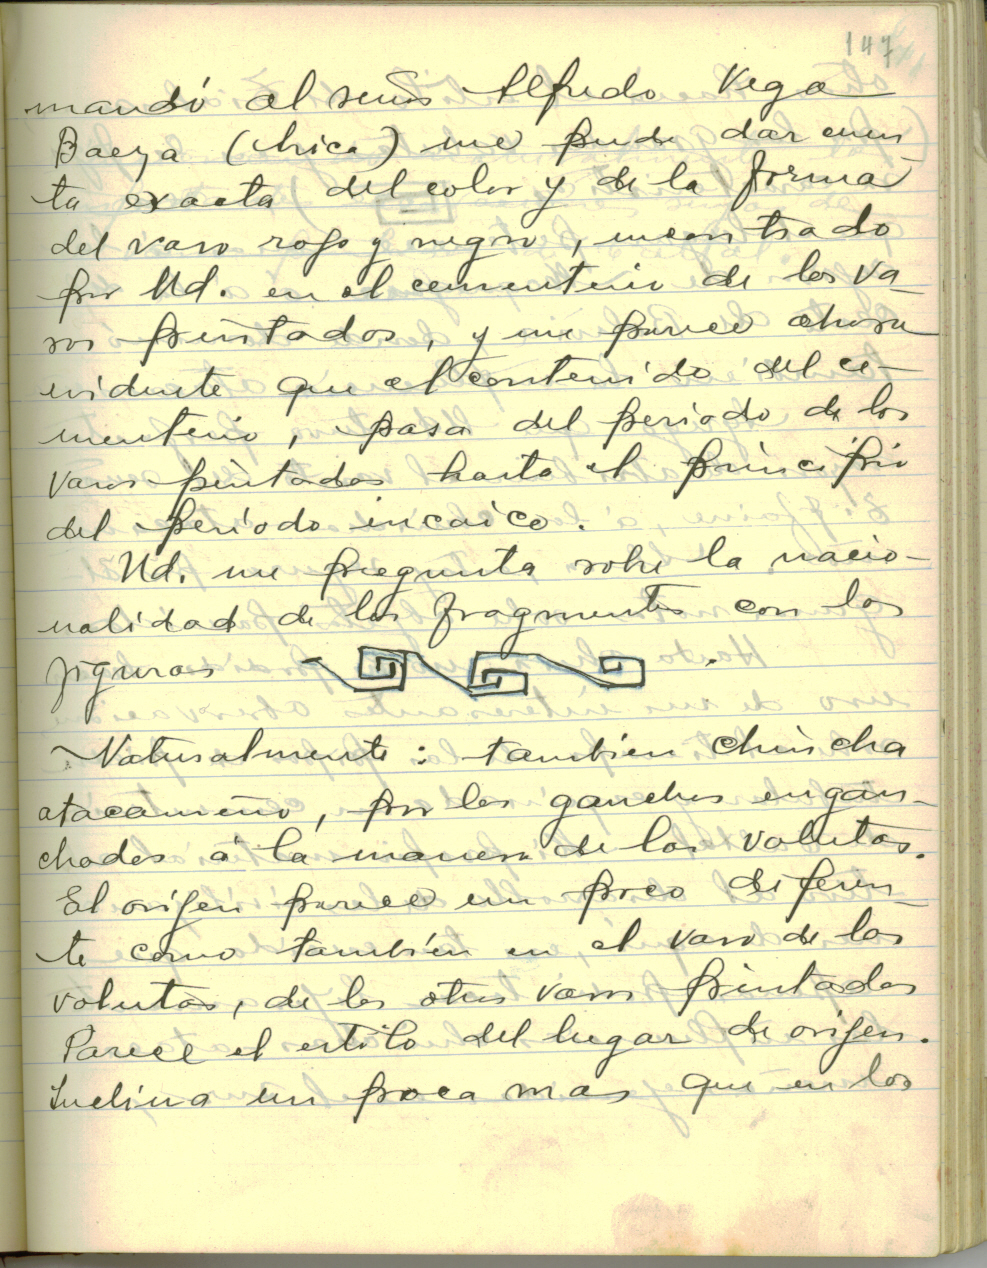 147
mandó al señor Alfredo Vega
Baeza (Arica) me pude dar cuen
ta exacta del color y de la forma
del vaso rojo y negro, encontrado
por Ud. en el cementerio de los va-
sos pintados, y me parece ahora
evidente que el contenido del ce-
menterio, pasa del período de los
vasos pintados hasta el principio
del período incaico.
Ud. me pregunta sobre la nacio-
nalidad de los fragmentos con las
figuras
Naturalmente: tambien chincha
atacameño, por los ganchos engan-
chados á la manera de las volutas.
El origen parece un poco diferen-
te como también en el vaso de las
volutas, de los otros vasos pintados
Parece el estilo del lugar de origen.
Inclina un poca mas que en los